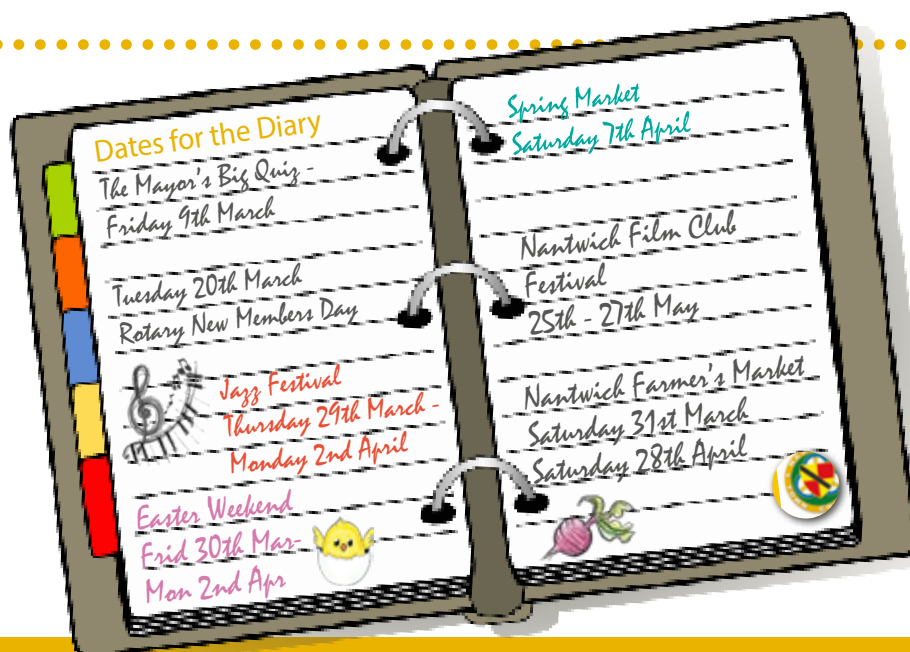 Dates for the Diary
The Mayor's Big Quiz -
Friday 9th March
Tuesday 20th March
Rotary New Members Day
Jazz Festival
Thursday 29th March -
Monday 2nd April
Easter Weekend
Frid 30th Mar-
Mon 2nd Apr
Spring Market
Saturday 7th April
Nantwich Film Club
Festival
25th - 27th May
Nantwich Farmer's Market
Saturday 31st March
Saturday 28th April